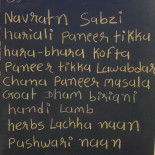 Navratn Sabzi
hariali Paneer tikka
hara-bhara Kofta
Paneer tikka Lawabdar
Chana Paneer masala
Goat Dham biriani
handi Lamb
herbs Lachha naan
Pashwari naan